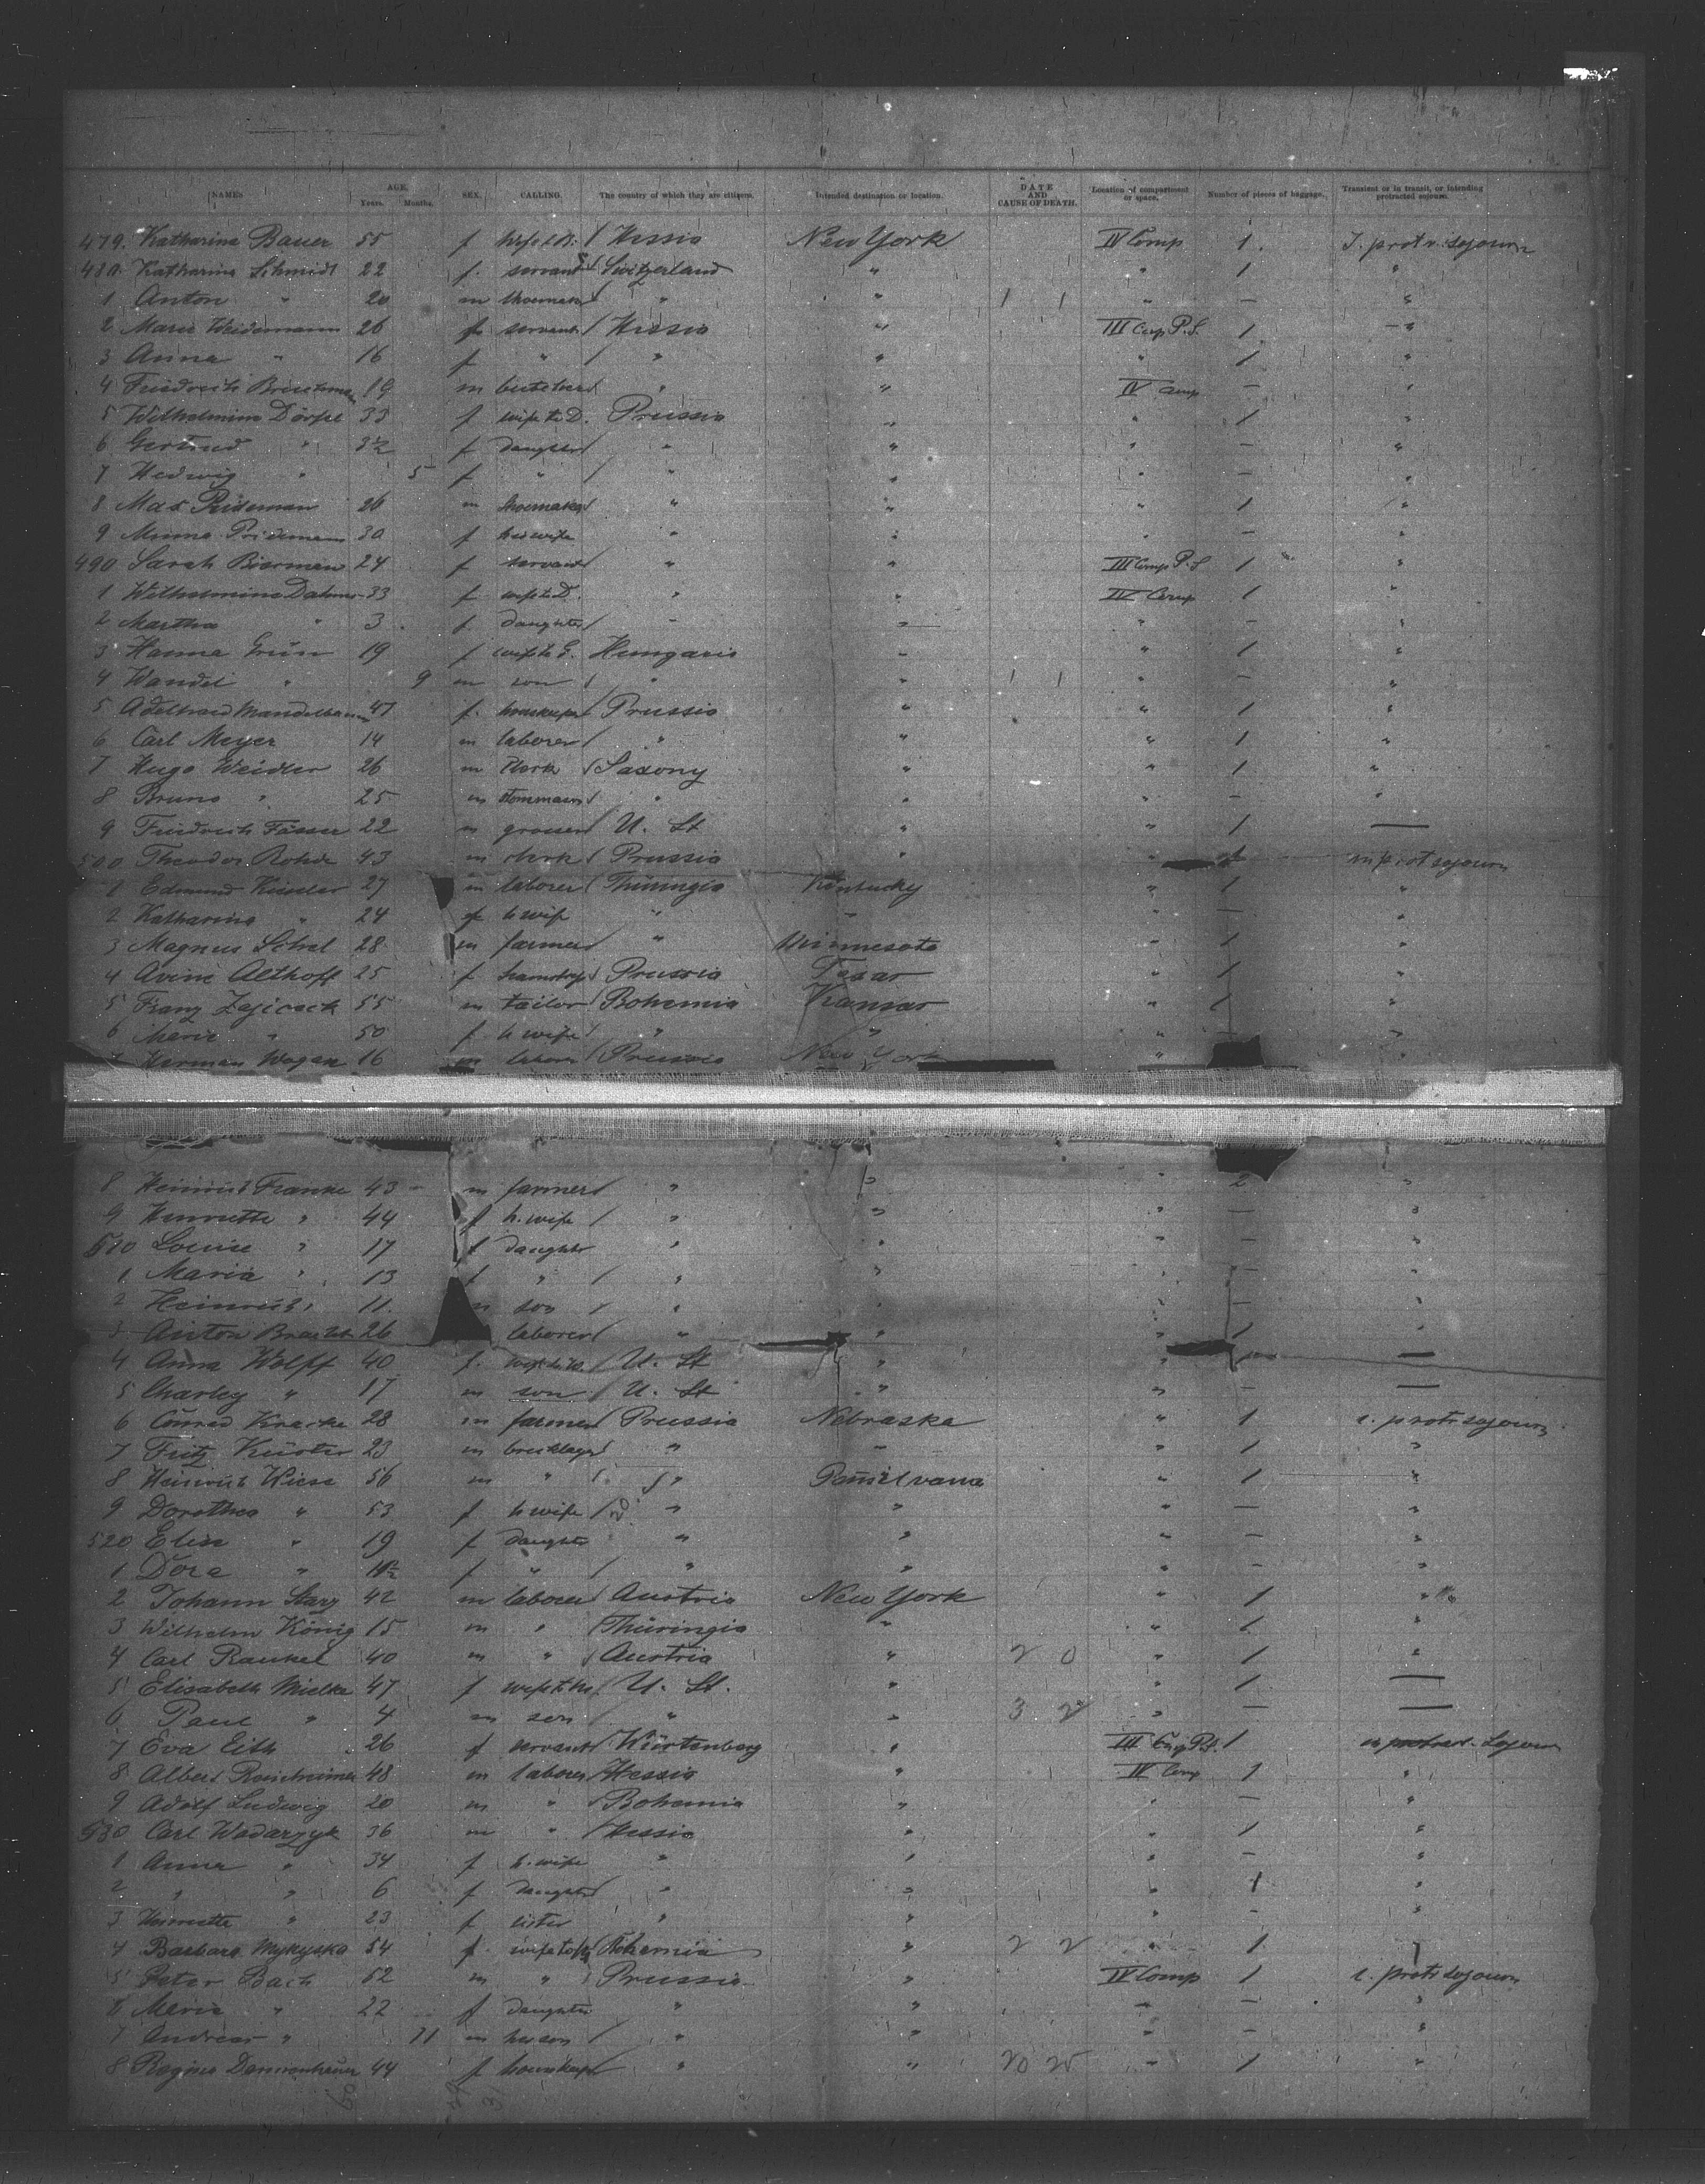 NAMES. AGE. Years. Months. SEX. CALLING. The country of which they are citizens. Intended destination or location. DATE AND CAUSE OF DEATH. Location of compartment or space. Number of pieces of baggage. Transient or in transit, or intending protracted sojourn.
479. Katharina Bauer 55 f wife to B. / Hessia New York IV Comp 1. I. protr. sojourn
480. Katharina Schmidt 22 f. servant / Switzerland " " 1 "
1 Anton " 20 m shoemaker / " " 1 1 " — "
2 Marie Weidemann 26 f servant / Hessia " III Comp P.S. 1 "
3 Anna " 16 f " / " " " 1 "
4 Friedrich 19 m butcher / " " IV Comp — "
5 Wilhelmine Dörfel 33 f wife to D. Prussia " " 1 "
6 Gertrud " 3½ f daughter / " " " — "
7 Hedwig " 5 f " / " " " — "
8 Max Prideman 26 m shoemaker / " " " 1 "
9 Minna Pridemann 30 f his wife " " " — "
490 Sarah Bierman 24 f servant / " " III Comp P.S 1 "
1 Wilhelmine Dahms 33 f wife to D. " " IV Comp 1 "
2 Martha " 3 f. daughter / " " " — "
3 Hanna Grün 19 f wife to G. Hungaria " " 1 "
4 Wandel " 9 m son / " " 1 1 " — "
5 Adelheid Mandelbaum 47 f. housekeeper / Prussia " " 1 "
6 Carl Meyer 14 m laborer / " " " 1 "
7 Hugo Weidler 26 m Clerk / Saxony " " 1 "
8 Bruno " 25 m / " " " — "
9 Friedrich Fasser 22 m grocer / U. St " " 1 —
500 Theodor Rohde 43 m clerk / Prussia " " in prot sojourn
1 Edmund Kiesler 27 m laborer / Thüringia Kentucky " 1 "
2 Katharina " 24 f h wife " " " — "
3 Magnus 28 m farmer / " Minnesota " 1 "
4 Avine Althoff 25 f / Prussia Texas " 1 "
5 Franz Zajicack 55 m tailor / Bohemia Kansas " 1 "
6 Marie " 50 f h wife / " " " "
7 Herman Wogan 16 m laborer / Prussia New York " "
8 Heinrich Franke 43 m farmer / " " " 2 "
9 Henriette " 44 f h. wife / " " " — "
510 Louise " 17 f daughter " " " — "
1 Maria " 13 f " / " " " — "
2 Heinrich " 11. m son / " " " — "
3 Anton Bracht 26 laborer / " " " 1 "
4 Anna Wolff 40 f. wife to W. / U. St " " 1 —
5 Charley " 17 m son / U. St " " — —
6 Conrad Kracke 28 m farmer / Prussia Nebraska " 1 i. protr sojourn
7 Fritz Küster 23 m bricklayer / " " " 1 "
8 Heinrich Wiese 56 m " / " Pensilvana " 1 "
9 Dorothea " 53 f h wife / " " " — "
520 Elise " 19 f daughter " " " — "
1 Dora " f " / " " " — "
2 Johann Stary 42 m laborer / Austria New York " 1 "
3 Wilhelm König 15 m " / Thüringia " " 1 "
4 Carl Rankel 40 m " / Austria " 2 0 " 1 "
5 Elisabeth Mielke 47 f wife to M. / U. St. " " 1 —
6 Paul " 4 m son / " " 3 2 " — —
7 Eva Eith 26 f servant / Würtenberg " III Comp P.S. 1 in protract. Sojourn
8 Albert 48 m laborer / Hessia " IV Comp 1 "
9 Adolf Ludwig 20 m " / Bohemia " " — "
530 Carl Wodarzyk 36 m " / Hessia " " 1 "
1 Anna " 34 f h. wife " " " — "
2 " " 6 f daughter / " " " 1 "
3 Henriette " 23 f sister " " " — "
4 Barbara Mykyska 54 f. wife to M / Bohemia " 2 2 " 1. "
5 Peter Bach 52 m " / Prussia " IV Comp 1 i. protr sojourn
6 Maria " 22 f daughter " " " — "
7 Andreas " 11 m her son / " " " — "
8 Regina Dannenhauer 44 f housekeeper / " " " 1 "